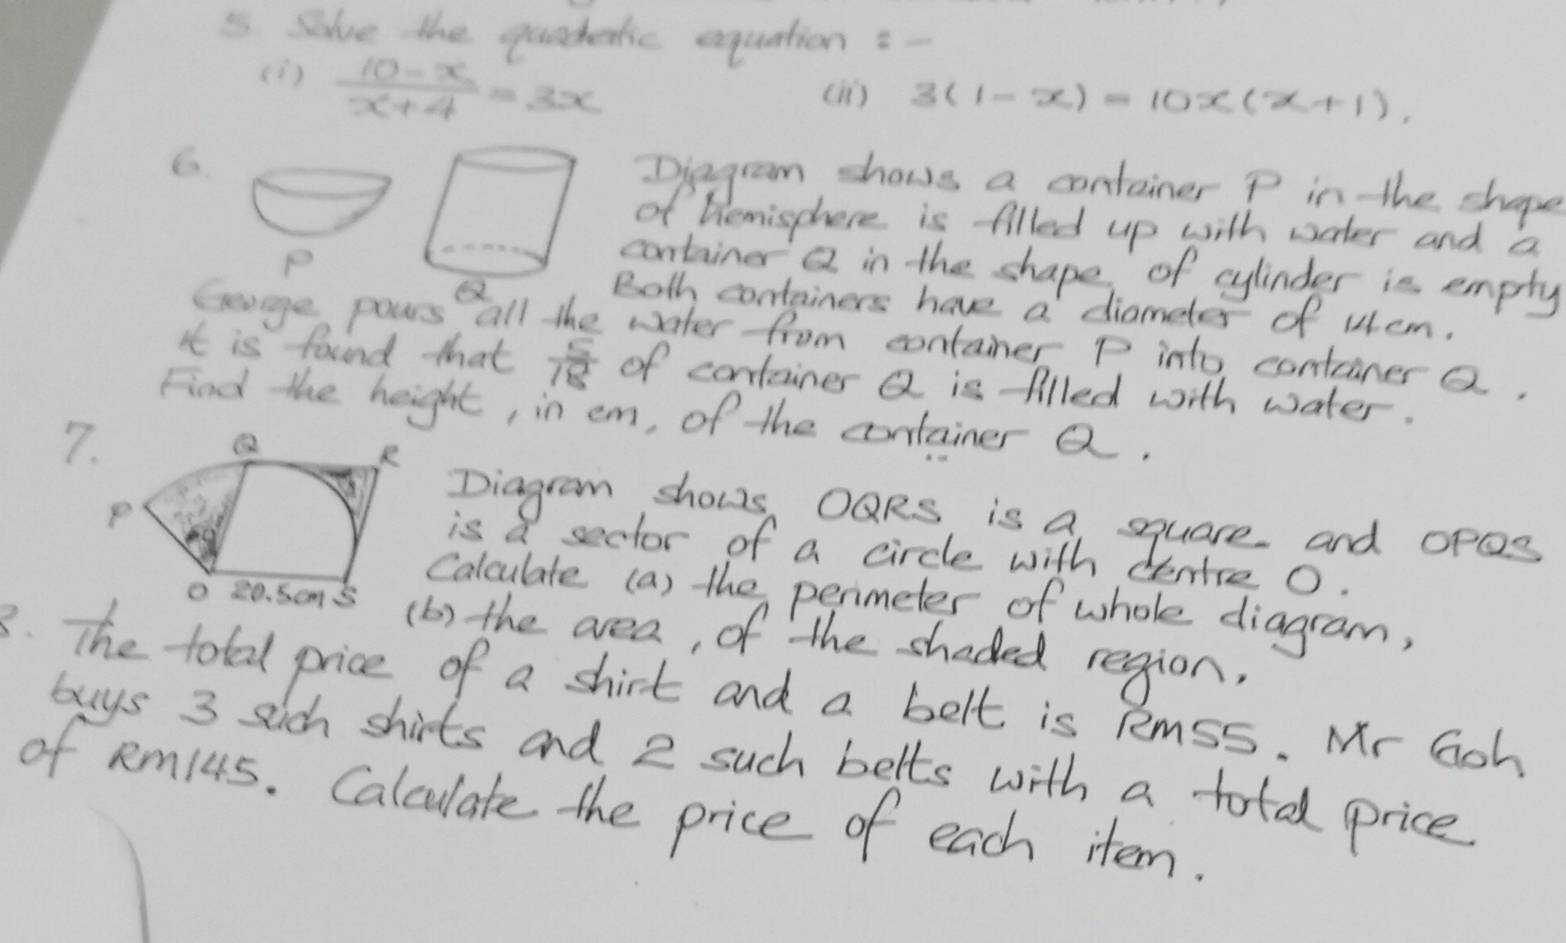 5. Solve the quadratic equation : -
(i) 10-x / x+4 = 3x (ii) 3(1-x) = 10x(x+1).
6. Diagram shows a container P in the shape
of hemisphere is filled up with water and a
container Q in the shape of cylinder is empty
P Q Both containers have a diameter of 14cm.
George pours all the water from container P into container Q.
It is found that 5/18 of container Q is filled with water.
Find the height, in cm, of the container Q.
7. Q R
P O 20.5cm S
Diagram shows OQRS is a square and OPQS
is a sector of a circle with centre O.
Calculate (a) the perimeter of whole diagram,
(b) the area, of the shaded region.
8. The total price of a shirt and a belt is RM55. Mr Goh
buys 3 such shirts and 2 such belts with a total price
of RM145. Calculate the price of each item.